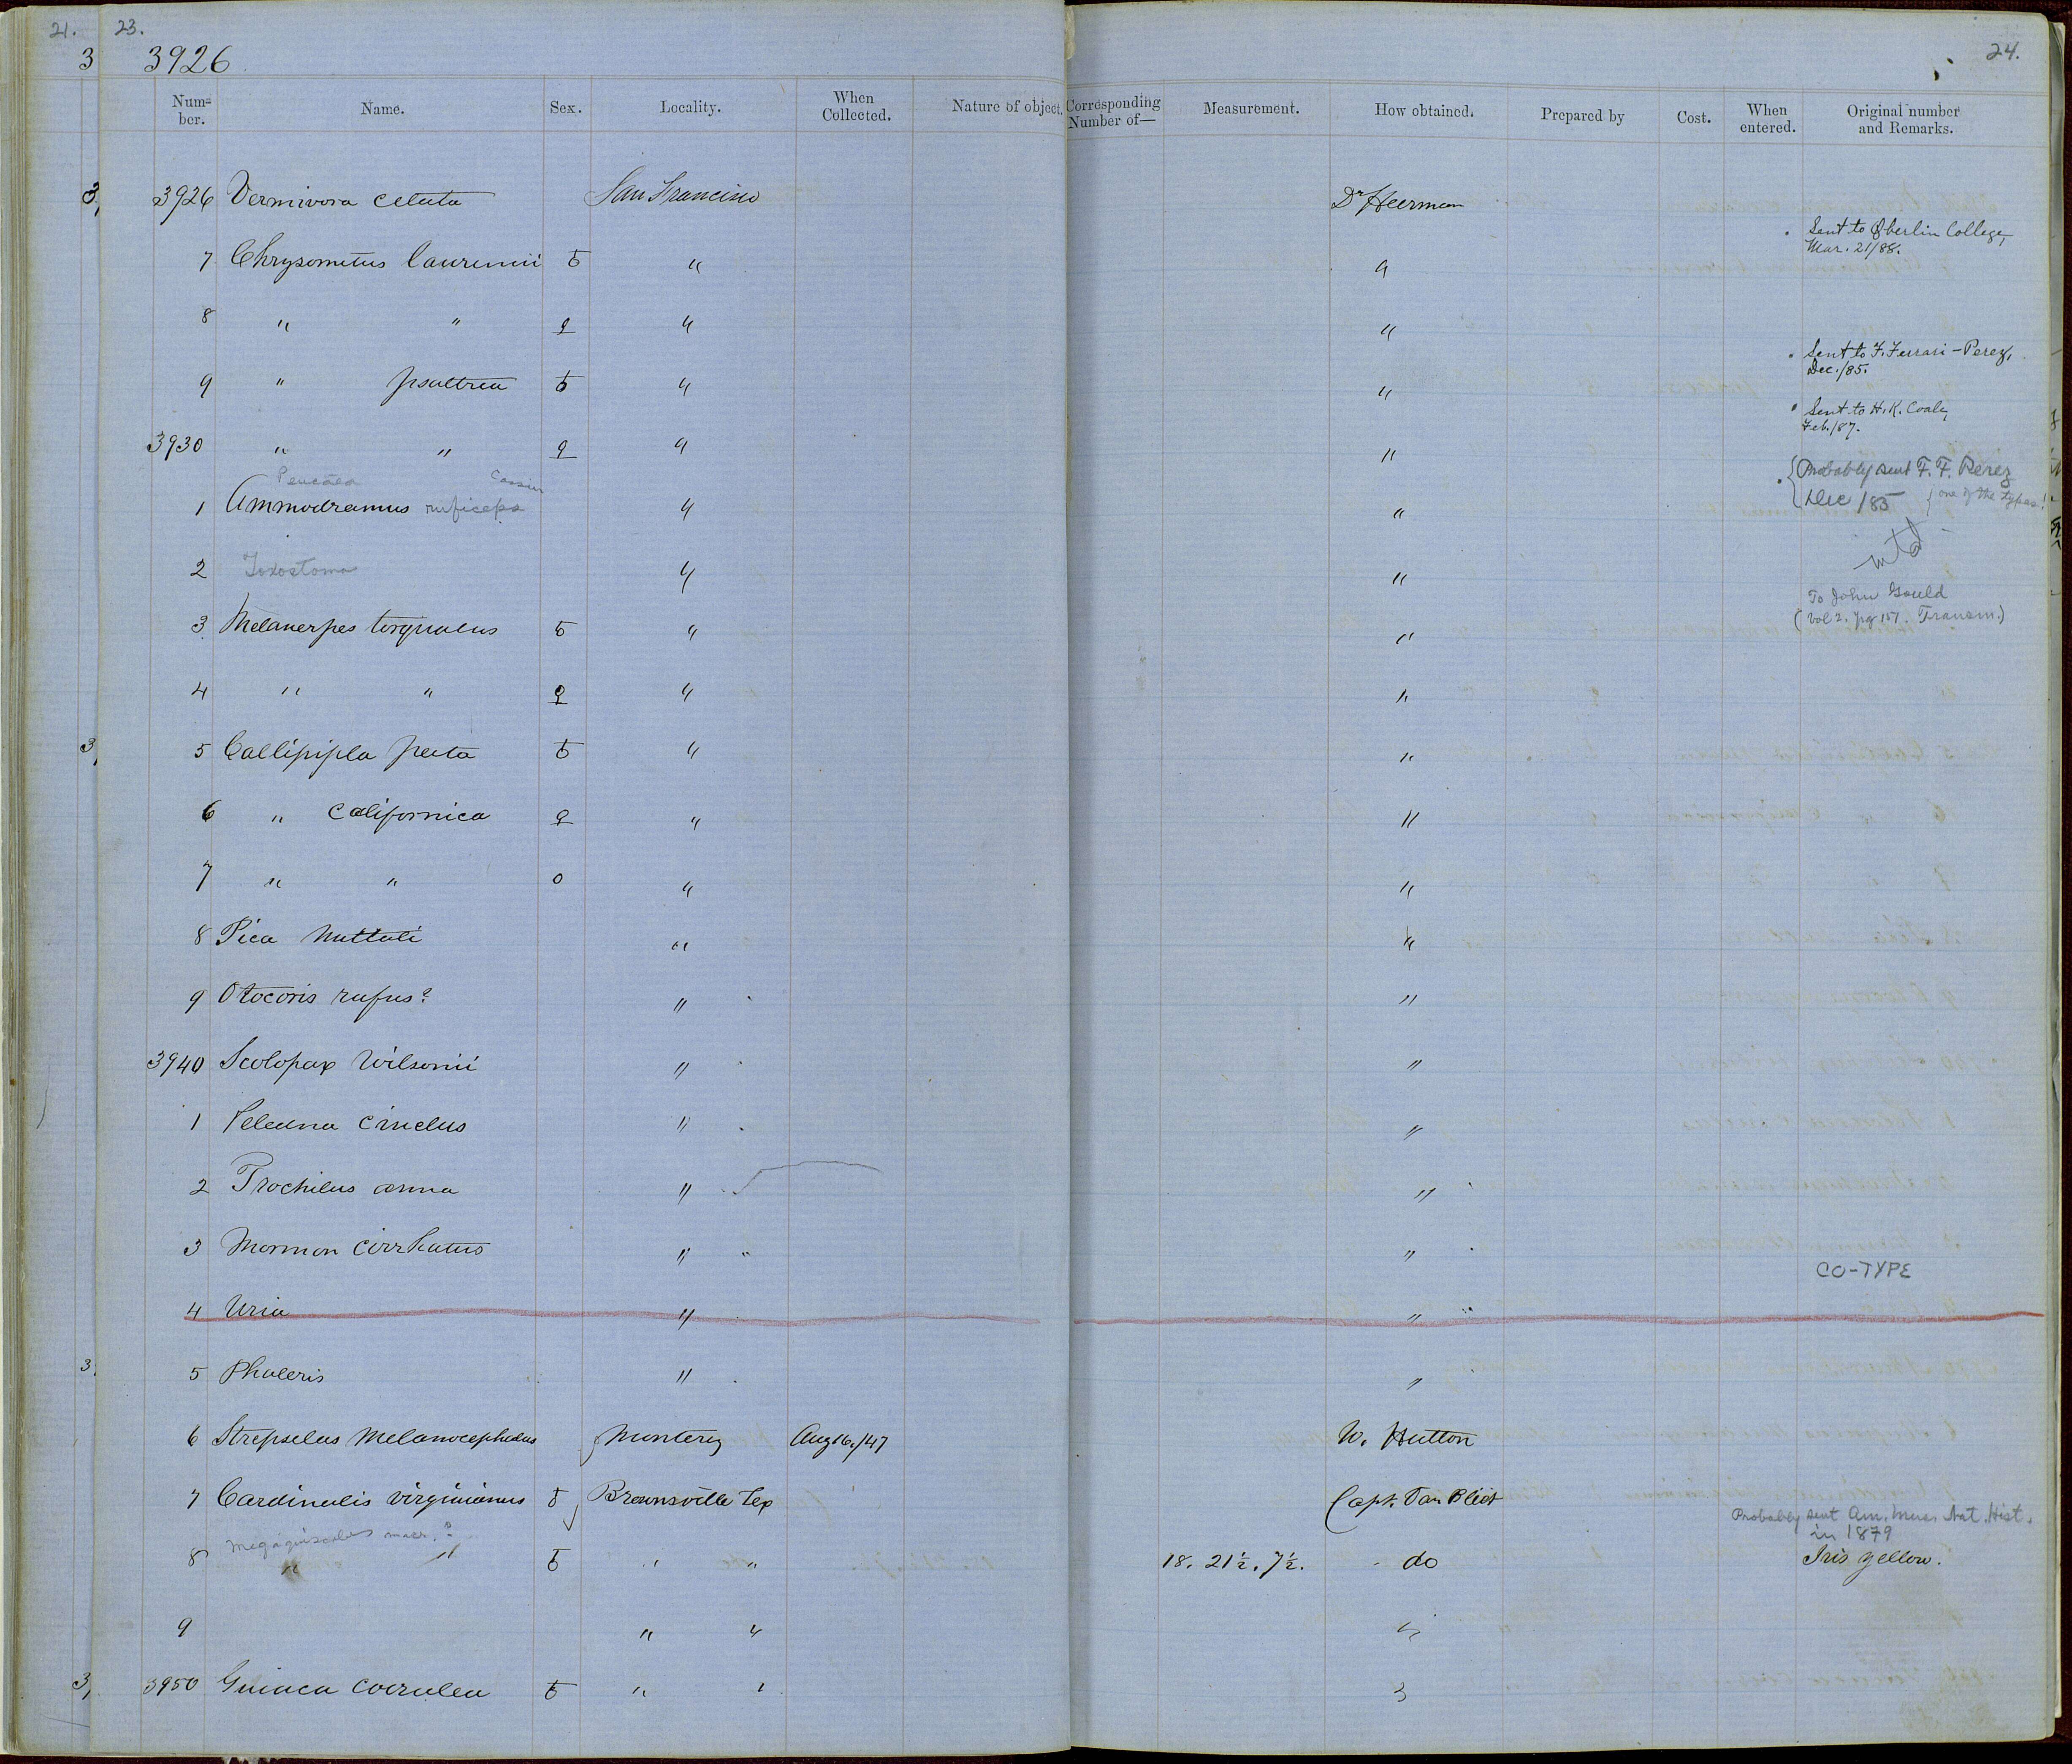 21. 23. 24.
3 3926
Num= ber. Name. Sex. Locality. When Collected. Nature of object. Corresponding Number of— Measurement. How obtained. Prepared by Cost. When entered. Original number and Remarks.
3, 3926 Vermivora celata San Francisco Dr Heerman
Sent to Oberlin College,
Mar. 21/88.
7 Chrysomitus laurencii ♂ " "
8 " " ♀ " "
Sent to F. Ferrari-Perez,
Dec./85.
9 " psaltria ♂ " "
Sent to H.K. Coale,
Feb./87.
3930 " " ♀ " "
Peucaea Cassin
Probably sent F. F. Perez
1 Ammodramus ruficeps " " Dec /85 {one of the types!
mtd
2 Toxostoma " "
To John Gould
(Vol 2. pg 151. Transm.)
3 Melanerpes torquatus ♂ " "
4 " " ♀ " "
3, 5 Callipipla picta ♂ " "
6 " Californica ♀ " "
7 " " o " "
8 Pica Nuttali " "
9 Otocoris rufus? " "
3940 Scolopax Wilsonii " "
1 Pelidna Cinclus " "
2 Trochilus anna " "
3 Mormon Cirrhatus " "
CO-TYPE
4 Uria " "
3, 5 Phaleris " "
6 Strepselas Melanocephalus Monterey Aug 16./47 W. Hutton
7 Cardinalis virginianus ♂ Brownsville Tex Capt. Van Vliet
Probably sent Am. Mus. Nat. Hist.
in 1879
Megaquiscalus macr.?
8 " " ♂ " " 18. 21½. 7½. do Iris yellow.
9 " " "
3, 3950 Guiaca coerulea ♂ " " "